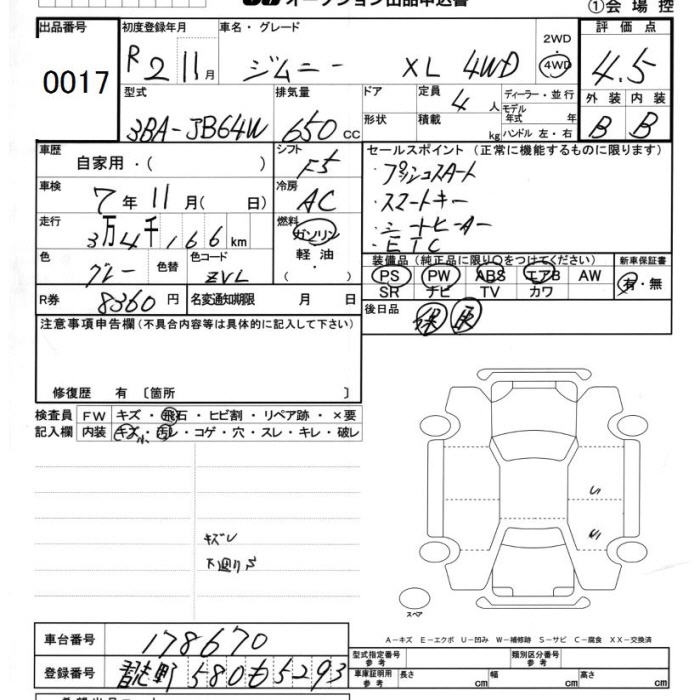 オークション出品申込書
①会場控
出品番号 0017
初度登録年月 R2 11月
車名・グレード ジムニー XL 4WD
2WD・4WD
評価点 4.5
外装 B 内装 B
型式 3BA-JB64W
排気量 650 cc
ドア
形状
定員 4人
積載 kg
ディーラー・並行
モデル年式 年
ハンドル 左・右
車歴 自家用・( )
シフト F5
セールスポイント (正常に機能するものに限ります)
・プッシュスタート
・スマートキー
・シートヒーター
・ETC
車検 7年11月( 日)
冷房 AC
走行 3万4千166km
燃料 ガソリン・軽油・( )
色 グレー 色替
色コード ZVL
装備品 (純正品に限り〇をつけてください)
PS PW ABS エアB AW
SR ナビ TV カワ
新車保証書 有・無
R券 8360円
名変通知期限 月 日
後日品 保 取
注意事項申告欄 (不具合内容等は具体的に記入して下さい)
修復歴 有 〔箇所 〕
検査員記入欄
FW キズ・飛石・ヒビ割・リペア跡・×要
内装 キズ小・汚レ・コゲ・穴・スレ・キレ・破レ
キズレ
下廻りS
スペア
A-キズ E-エクボ U-凹み W-補修跡 S-サビ C-腐食 XX-交換済
車台番号 178670
登録番号 習志野 580 も 5293
型式指定番号 参考
類別区分番号 参考
車庫証明用 参考 長さ cm 幅 cm 高さ cm